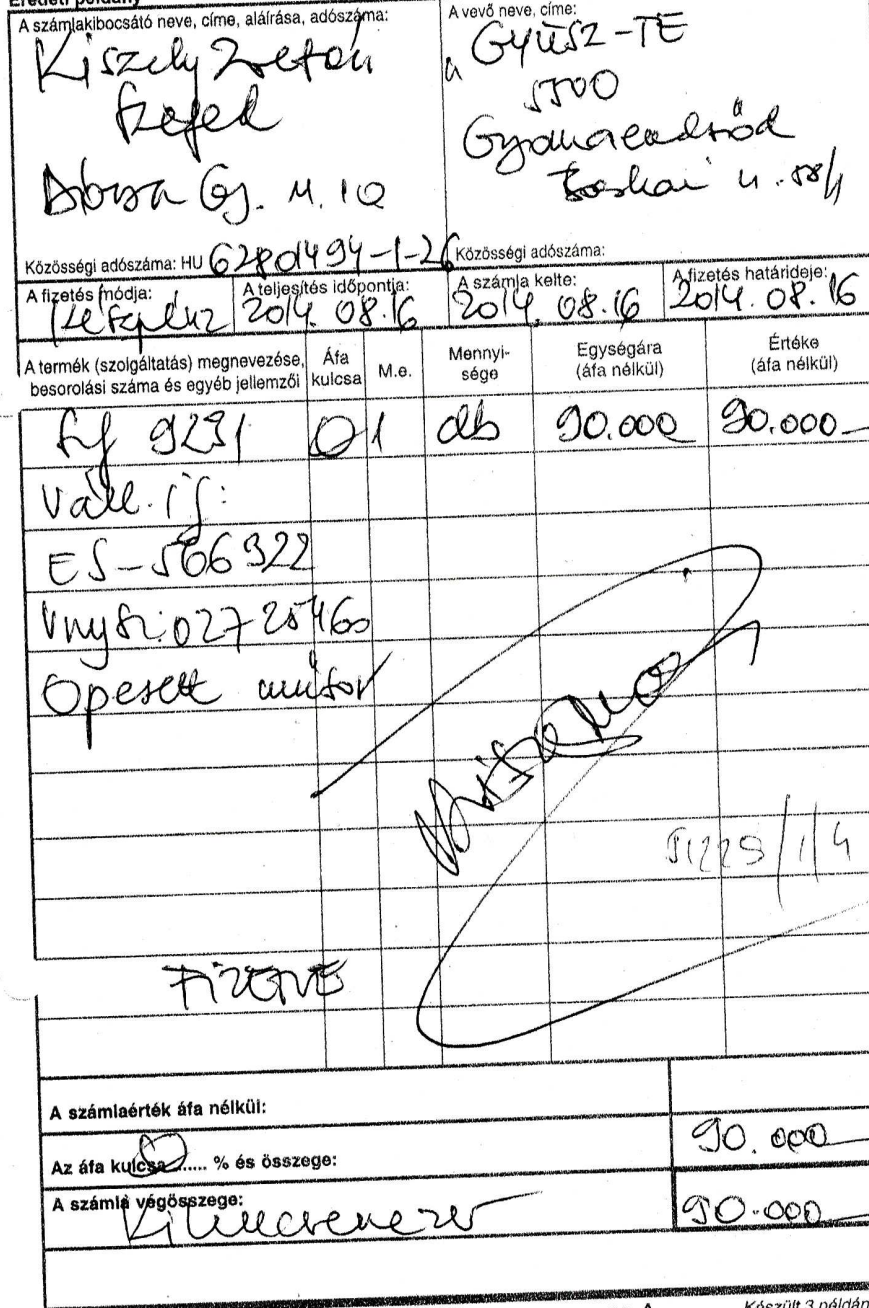 Eredeti példány
A számlakibocsátó neve, címe, aláírása, adószáma:
Kiszely Zoltán
Szeged
Dózsa Gy. u. 10
Közösségi adószáma: HU 62801494-1-26
A vevő neve, címe:
GYÜSZ-TE
5500
Gyomaendrőd
u. 58/1
Közösségi adószáma:
A fizetés módja:
Készpénz
A teljesítés időpontja:
2014. 08.16
A számla kelte:
2014. 08.16
A fizetés határideje:
2014. 08. 16
A termék (szolgáltatás) megnevezése, besorolási száma és egyéb jellemzői
Áfa kulcsa
M.e.
Mennyi-
sége
Egységára
(áfa nélkül)
Értéke
(áfa nélkül)
9231 0 1 db 90.000 90.000
Váll. ig:
ES-566322
Vny sz: 02725460
Operett műsor
FIZETVE
A számlaérték áfa nélkül:
Az áfa kulcsa ...... % és összege:
90.000
A számla végösszege:
Kilencvenezer
90.000
Készült 3 példán